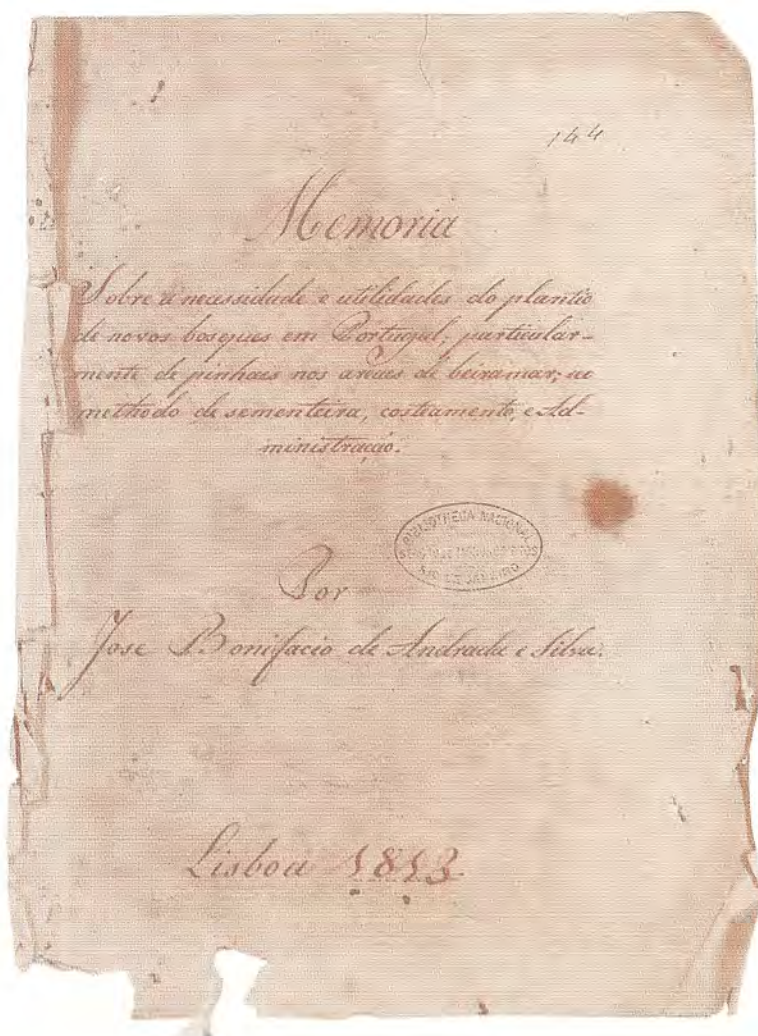 144
Memoria
Sobre a necessidade e utilidades do plantio
de novos bosques em Portugal; particular-
mente de pinhaes nos areaes de beiramar; seo
methodo de sementeira, costeamento, e Ad-
ministração.
BIBLIOTHECA NACIONAL
RIO DE JANEIRO
Por
Jose Bonifacio de Andrada e Silva.
Lisboa 1813